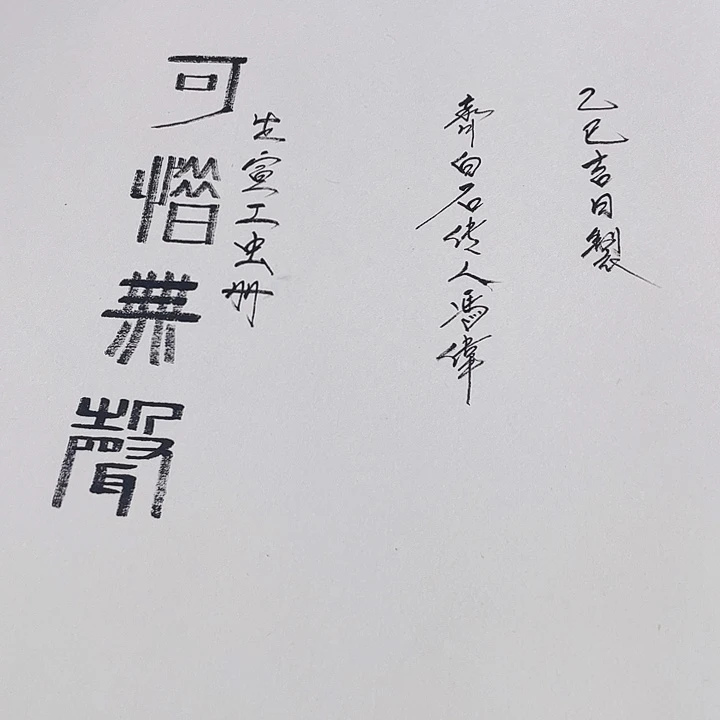 可惜無聲
生宣工虫册
齊白石传人馮偉
乙巳吉日製